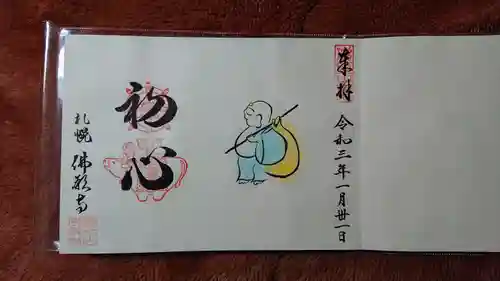 来拝
令和三年一月卅一日
初心
札幌 佛願寺